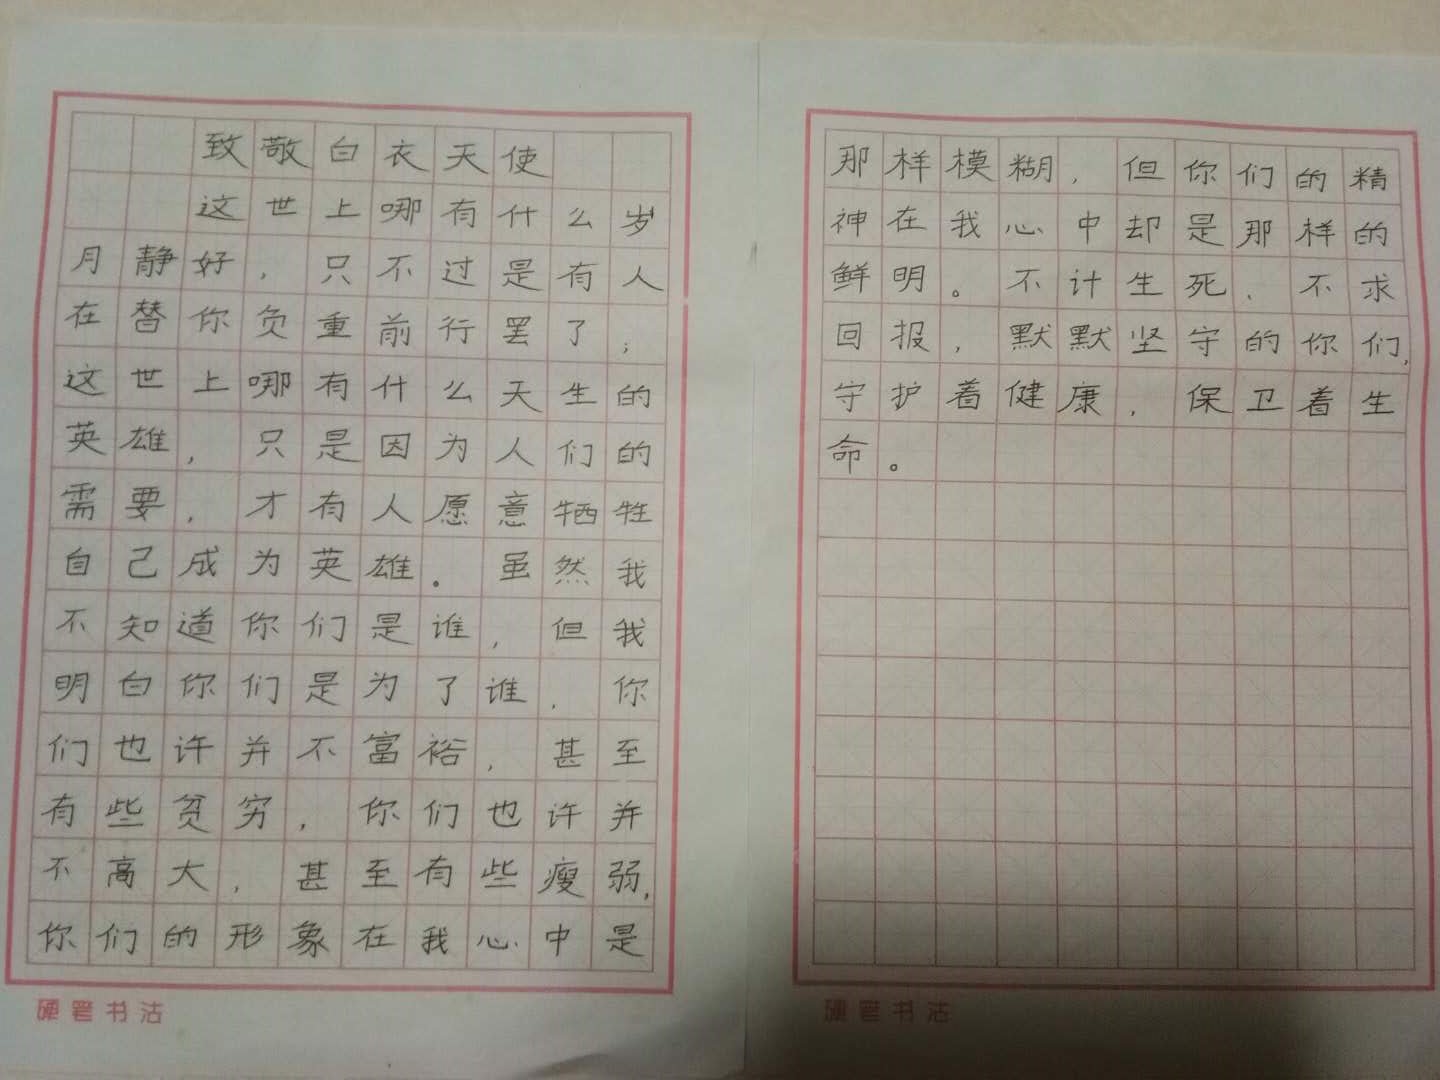 致敬白衣天使
这世上哪有什么岁
月静好，只不过是有人
在替你负重前行罢了；
这世上哪有什么天生的
英雄，只是因为人们的
需要，才有人愿意牺牲
自己成为英雄。虽然我
不知道你们是谁，但我
明白你们是为了谁，你
们也许并不富裕，甚至
有些贫穷，你们也许并
不高大，甚至有些瘦弱，
你们的形象在我心中是
硬笔书法
那样模糊，但你们的精
神在我心中却是那样的
鲜明。不计生死、不求
回报，默默坚守的你们，
守护着健康，保卫着生
命。
硬笔书法